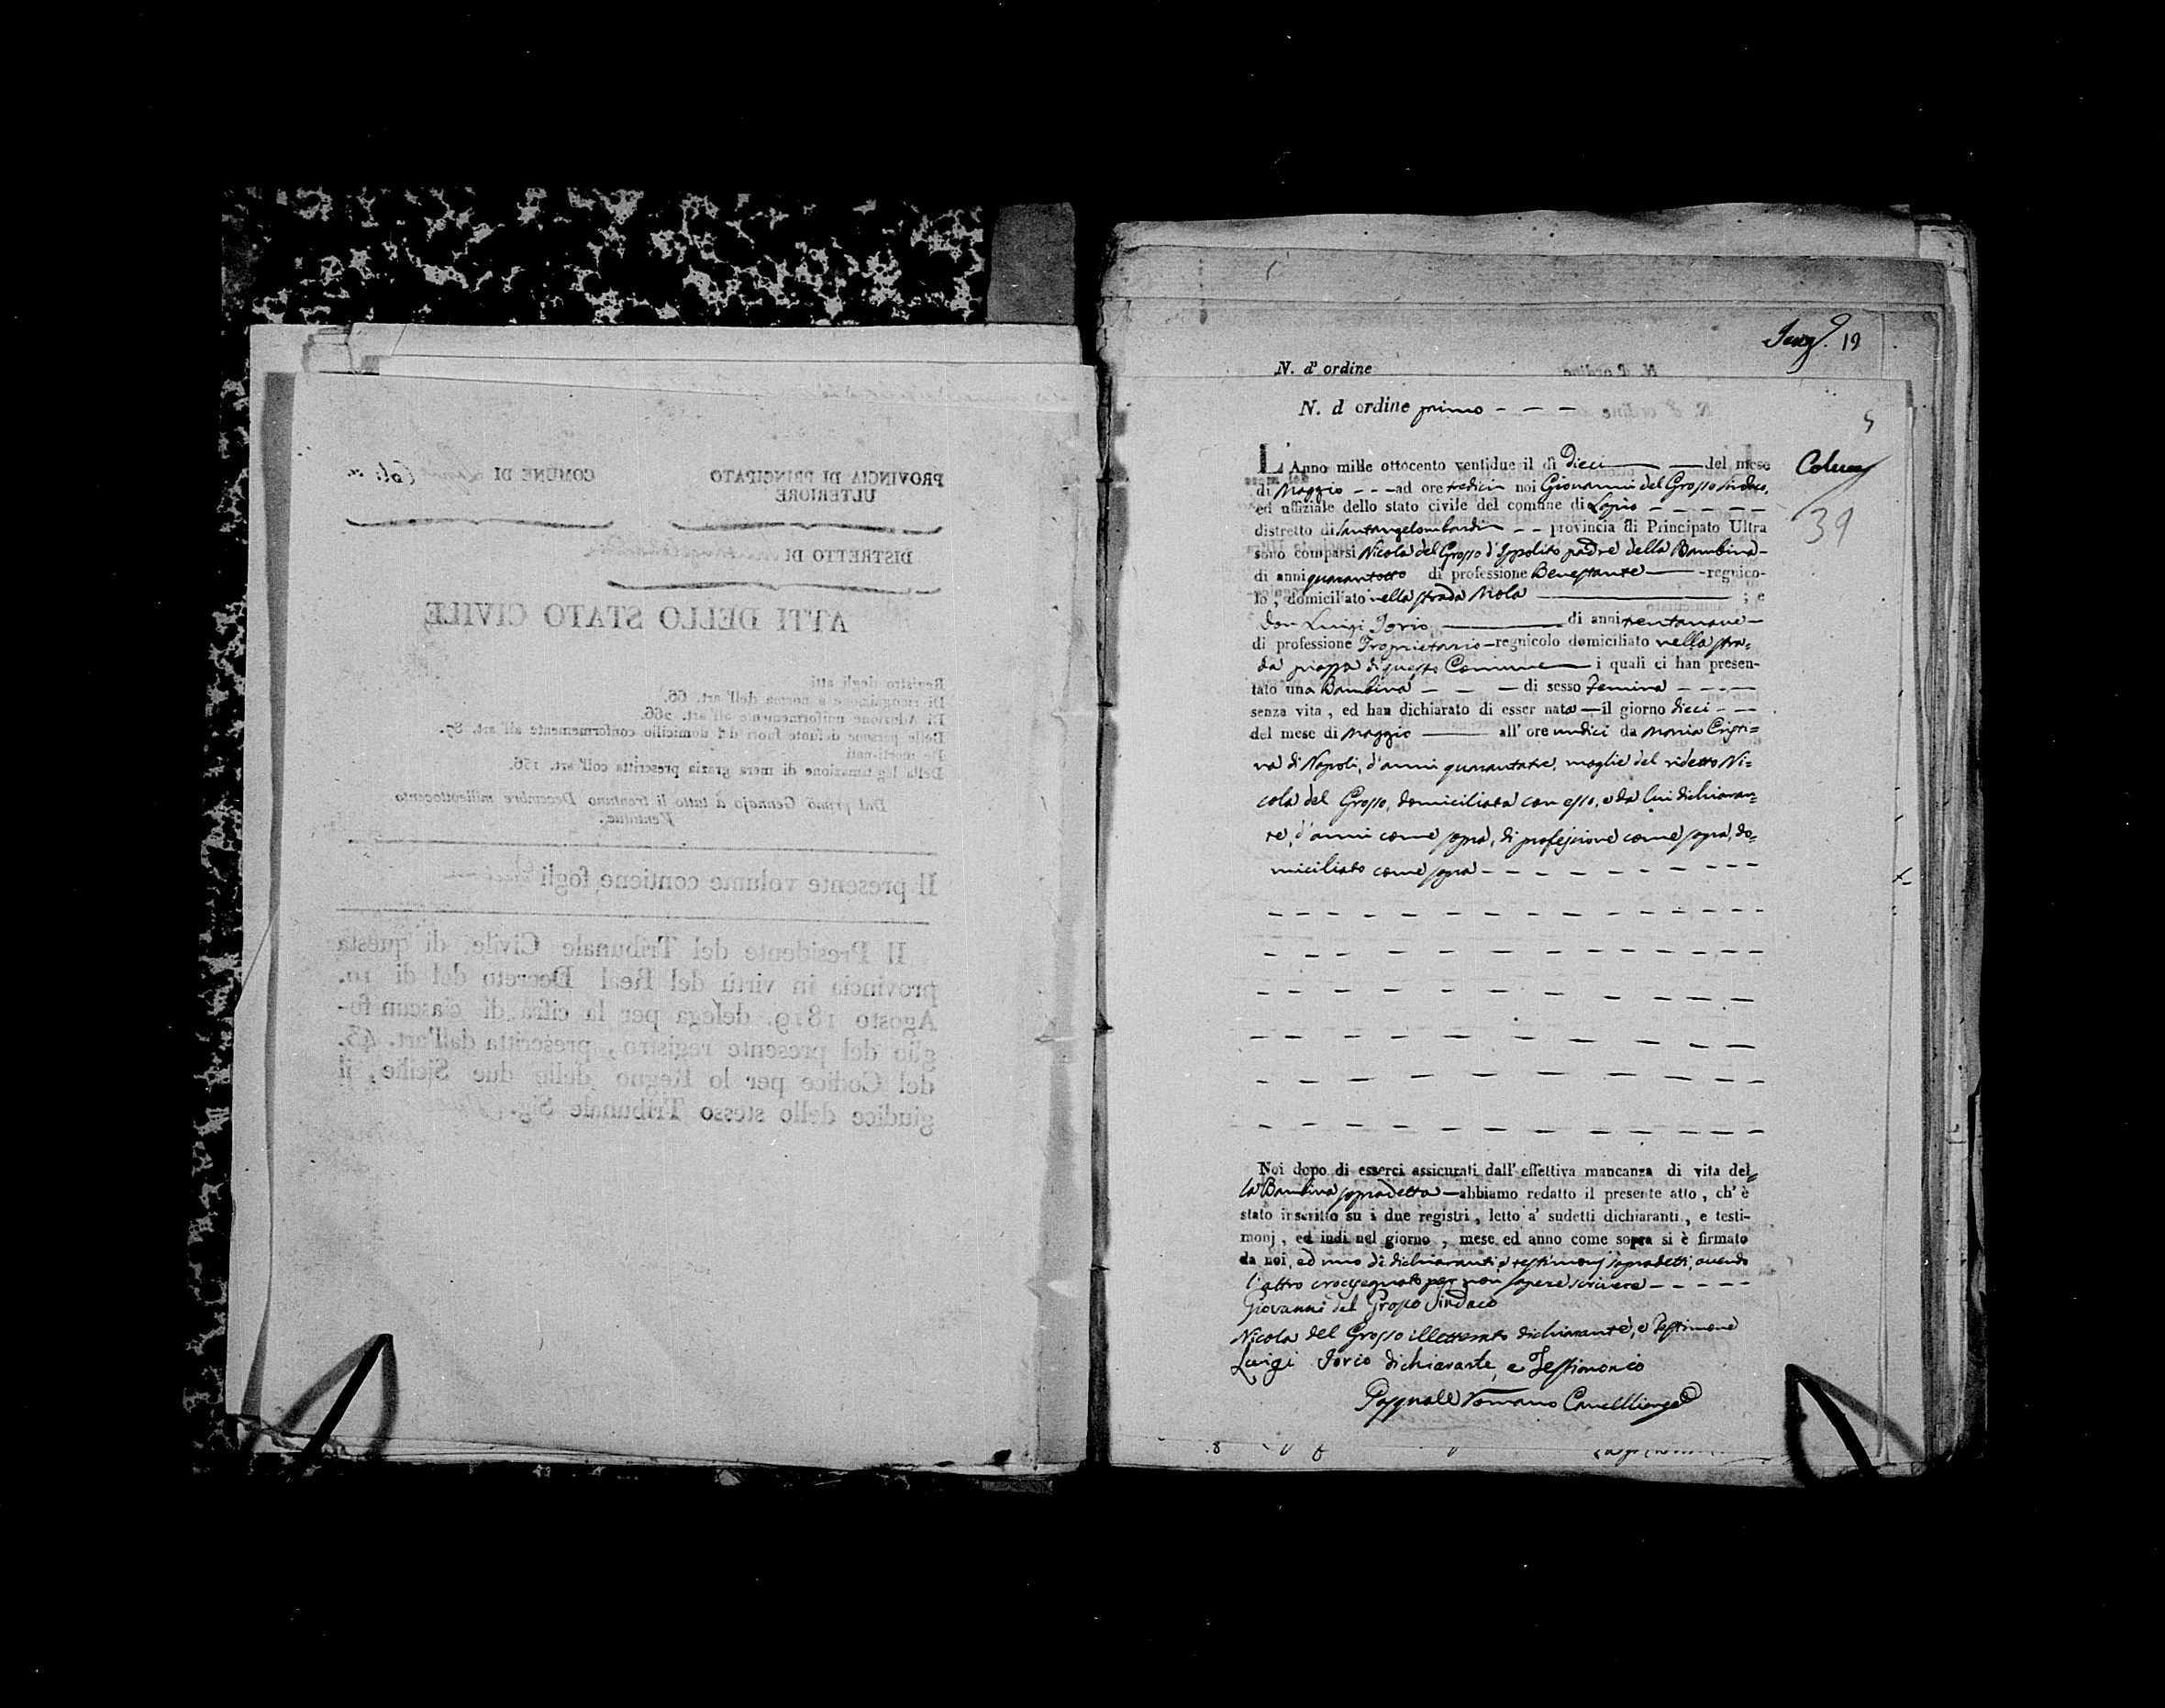 COMUNE DI
PROVINCIA DI PRINCIPATO
ULTERIORE
DISTRETTO DI
ATTI DELLO STATO CIVILE
Registro degli atti
Di ricognizione a norma dell' art. 66.
Di Adozione uniformemente all' art. 266.
Delle persone defunte fuori del domicilio conformemente all' art. 87.
De morti-nati
Della legitimazione di mera grazia prescritta coll' art. 156.
Dal primo Gennajo a tutto li trentuno Decembre milleottocento
Ventidue.
Il presente volume contiene fogli
Il Presidente del Tribunale Civile di questa
provincia in virtù del Real Decreto del dì 10.
Agosto 1819. delega per la cifra di ciascun fo-
glio del presente registro, prescritta dall'art. 43.
del Codice per lo Regno delle due Sicilie, il
giudice dello stesso Tribunale Sig.
19
N. d' ordine
N. d ordine primo - - -
5
L'Anno mille ottocento ventidue il dì Dieci del mese
di Maggio - - - ad ore tredici noi Giovanni del Grosso sindaco,
ed uffiziale dello stato civile del comune di Lapio - - - - -
39
distretto di Santangelombardi - - provincia di Principato Ultra
sono comparsi Nicola del Grosso d'Ippolito padre della Bambina -
di anni quarantotto di professione Benestante - regnico-
lo, domiciliato nella strada Mola ; e
don Luigi Iorio di anni trentanove -
di professione Proprietario - regnicolo domiciliato nella stra=
da piazza di questo Comune i quali ci han presen-
tato una Bambina - - - di sesso Femina - - - -
senza vita, ed han dichiarato di esser nata - il giorno dieci - - -
del mese di Maggio all' ore undici da Maria Cristi=
na di Napoli, d'anni quarantatre, moglie del ridetto Ni=
cola del Grosso, domiciliata con esso, e da lui dichiaran=
te, d'anni come sopra, di professione come sopra, do=
miciliato come sopra - - - - - - - - -
Noi dopo di esserci assicurati dall' effettiva mancanza di vita del=
la Bambina sopradetta - abbiamo redatto il presente atto, ch' è
stato inscritto su i due registri, letto a' sudetti dichiaranti, e testi-
monj, ed indi nel giorno, mese ed anno come sopra si è firmato
da noi, ed uno de dichiaranti, e testimonj sopradetti, avendo
l'altro crocesegnato per non sapere scrivere - - - - -
Giovanni del Grosso Sindaco
Nicola del Grosso illetterato dichiarante, e Testimone
Luigi Iorio dichiarante, e Testimonio
Pasquale Romano Cancelliere